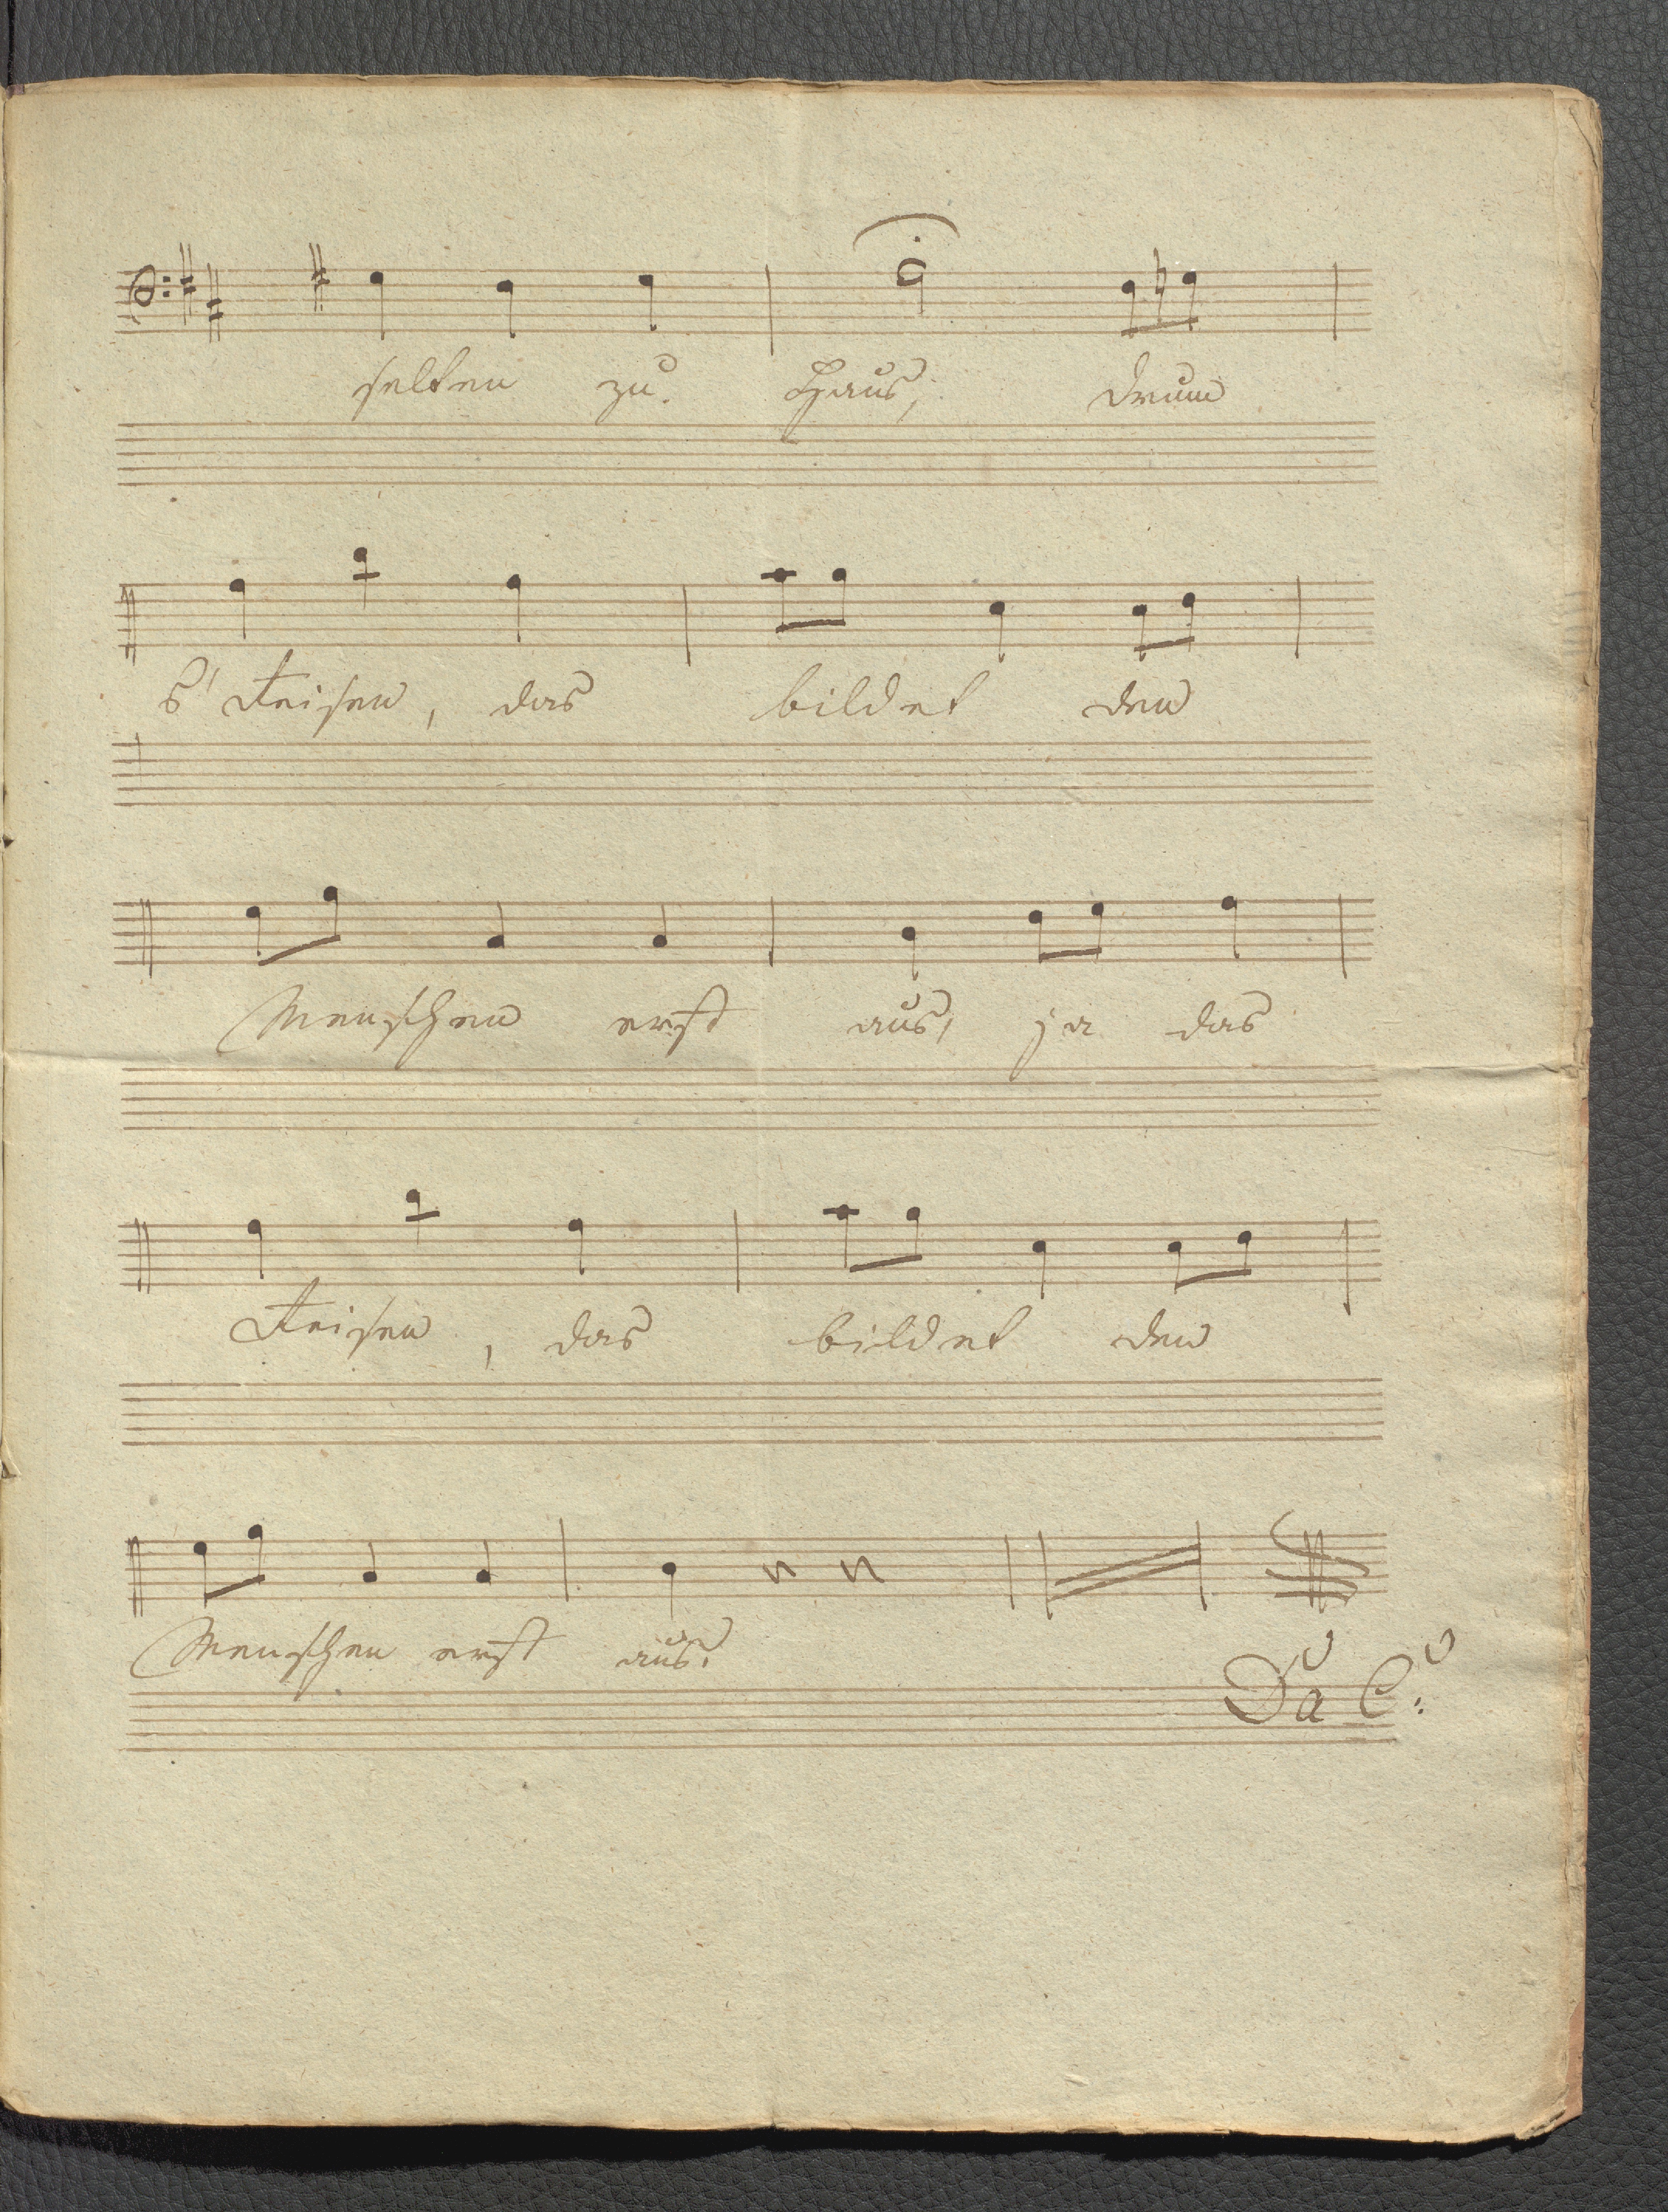 selten zu Haus, drum
s' Reisen, das bildet den
Menschen erst aus, ja das
Reisen, das bildet den
Menschen erst aus.
Da Co: